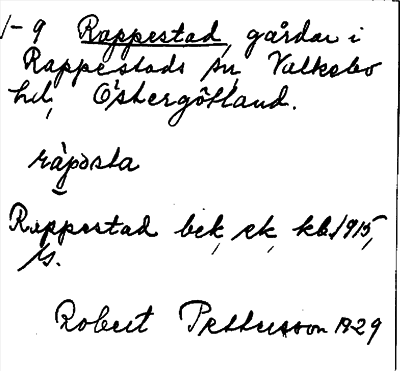 1-9 Rappestad, gårdar i
Rappestads sn, Valkebo
hd, Östergötland.
ràposta
Rappestad bek, ek, kb. 1915,
Robert Pettersson 1929